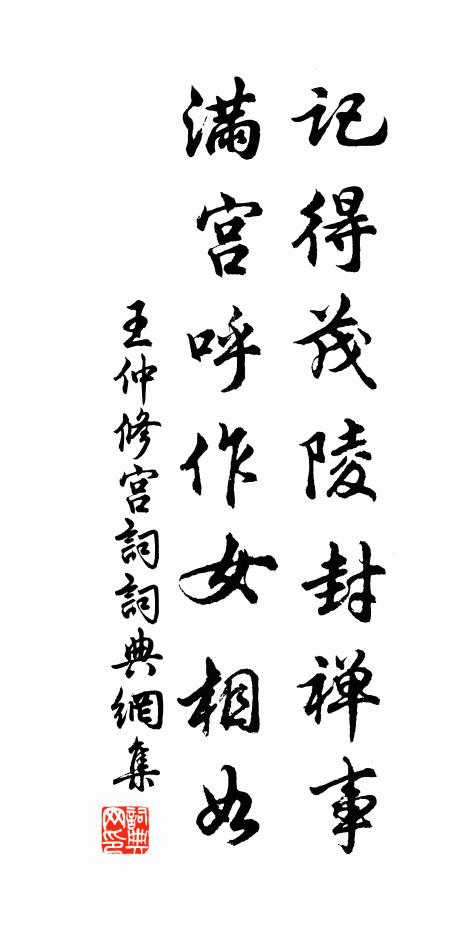 记得茂陵封禅事
满宫呼作女相如
王仲修宫詞詞典網集
詞典网印